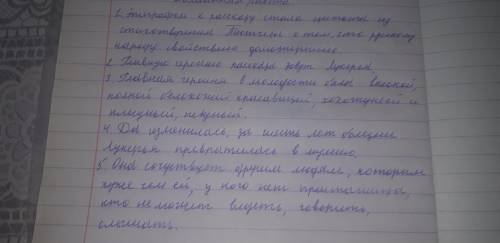 Домашняя работа
1. Эпиграфом к рассказу стала цитата из
стихотворения Тютчева о том, что русскому
народу свойственно долготерпение.
2. Главную героиню рассказа зовут Лукерья.
3. Главная героиня в молодости была высокой,
полной белокожей красавицей, хохотуньей и
плясуньей, певуньей.
4. Да изменилась, за шесть лет болезни
Лукерья превратилась в мумию.
5. Она сочувствует другим людям, которым
хуже чем ей, у кого нет пристанища,
кто не может видеть, говорить,
слышать.